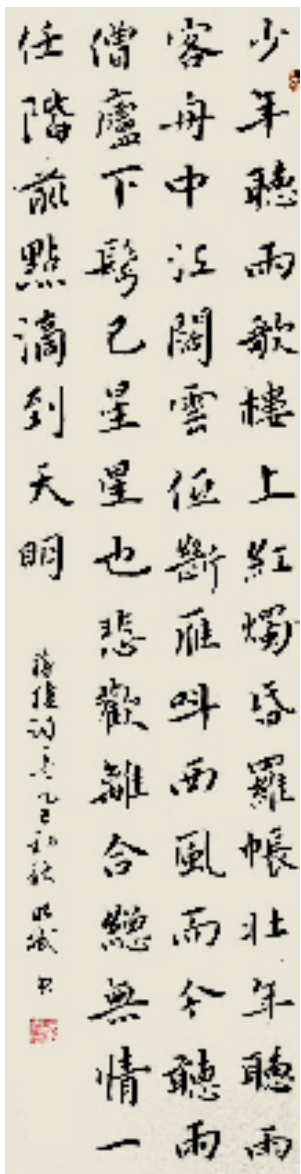 少年聽雨歌樓上紅燭昏羅帳壯年聽雨
客舟中江闊雲低斷雁叫西風而今聽雨
僧廬下鬢已星星也悲歡離合總無情一
任階前點滴到天明
蔣捷詞一首乙巳初秋